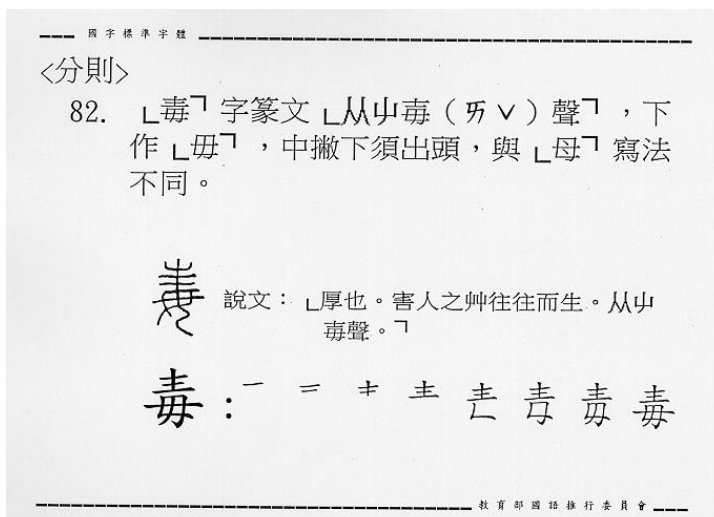 國字標準字體
<分則>
82. 「毒」字篆文「从屮毐(ㄞˇ)聲」，下
作「毋」，中撇下須出頭，與「母」寫法
不同。
說文：「厚也。害人之艸往往而生。从屮
毐聲。」
毒：
教育部國語推行委員會